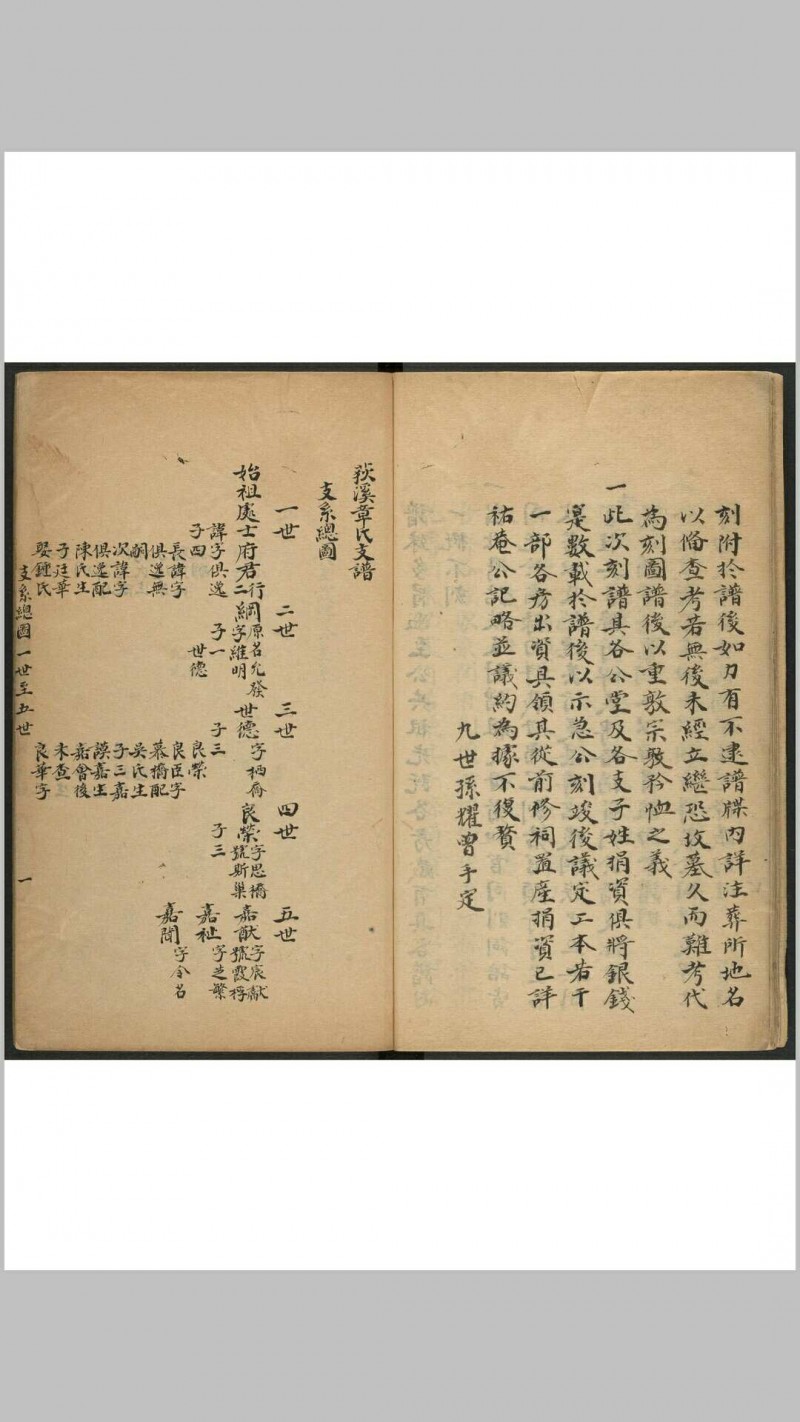 刻附於譜後如乃有不建譜牒內詳注葬所地名
以俻查考若無後未經立繼恐坟墓久而難考代
為刻圖譜後以重敦宗聀矜恤之義
一此次刻譜其各公堂及各支子姓捐資俱將銀錢
寔數載於譜後以示急公刻竣後議定工本若干
一部各房出資具領其從前修祠置產捐資已詳
祐菴公記略並議約為據不復贅
九世孫耀曾手定
荻溪章氏支譜
支系總圖
一世
二世
三世
四世
五世
始祖處士府君行二
諱字俱逸
子四
長諱字
俱逸無
嗣
次諱字
俱逸配
陳氏生
子廷華
娶鍾氏
綱原名允發
字維明
子一
世德
世德字栖喬
子三
良榮
良臣字
慕橋配
吳氏生
子三嘉
謨嘉生
嘉會後
未查
良華字
良榮字思橋
號斯巢
子三
嘉猷字宸猷
號霞桴
嘉祉字芝繁
嘉聞字令名
支系總圖 一世至五世
一